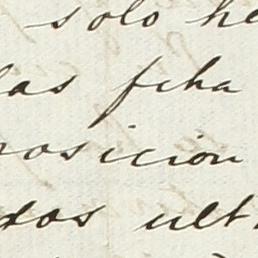 solo he
las fcha
posicion
dos ult